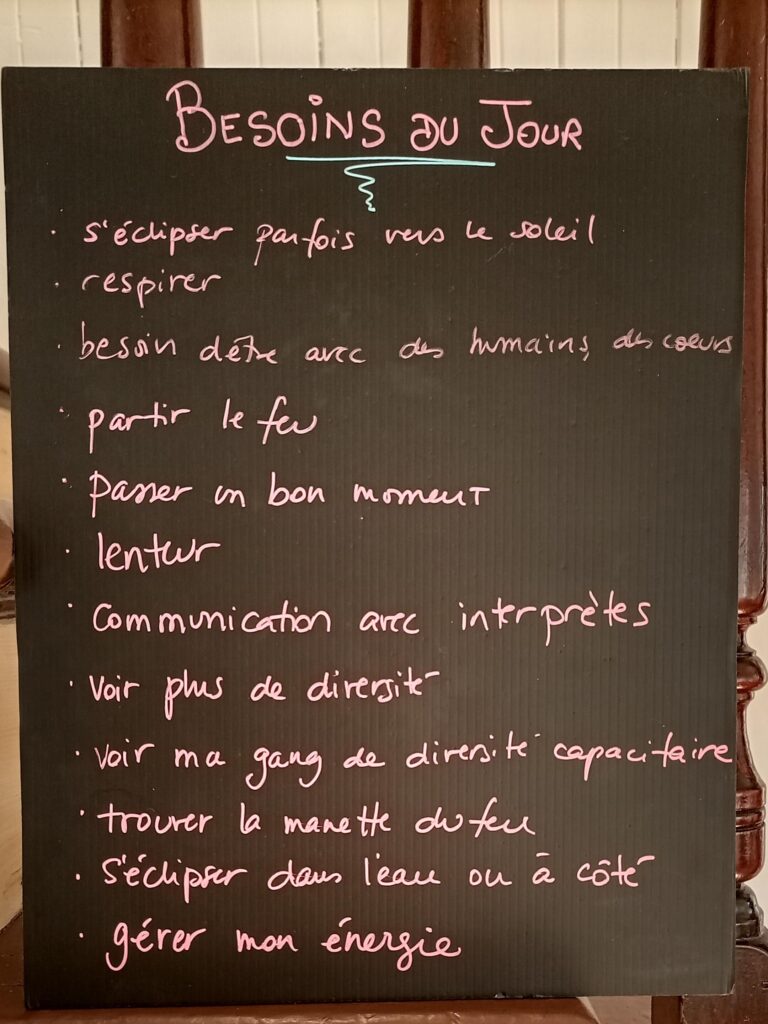 BESOINS DU JOUR
· s'éclipser parfois vers le soleil
· respirer
· besoin d'être avec des humains, des coeurs
· partir le feu
· passer un bon moment
· lenteur
· communication avec interprètes
· voir plus de diversité
· voir ma gang de diversité capacitaire
· trouver la manette du feu
· s'éclipser dans l'eau ou à côté
· gérer mon énergie